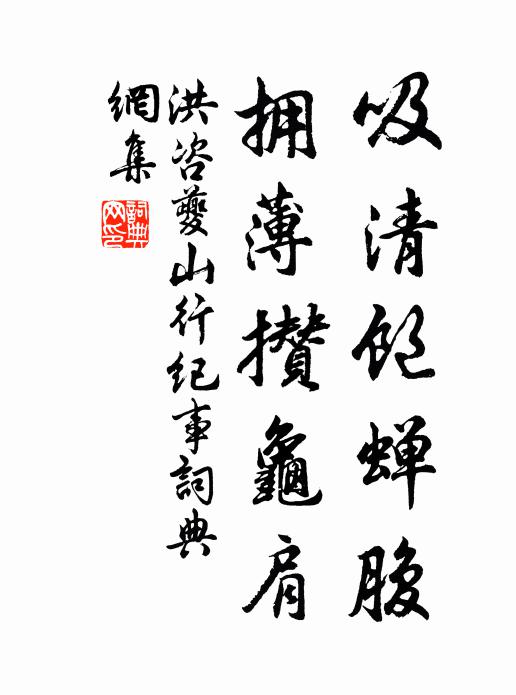 吸清飽蟬腹
拥薄攢龜肩
洪咨夔山行纪事詞典
網集
詞典网印